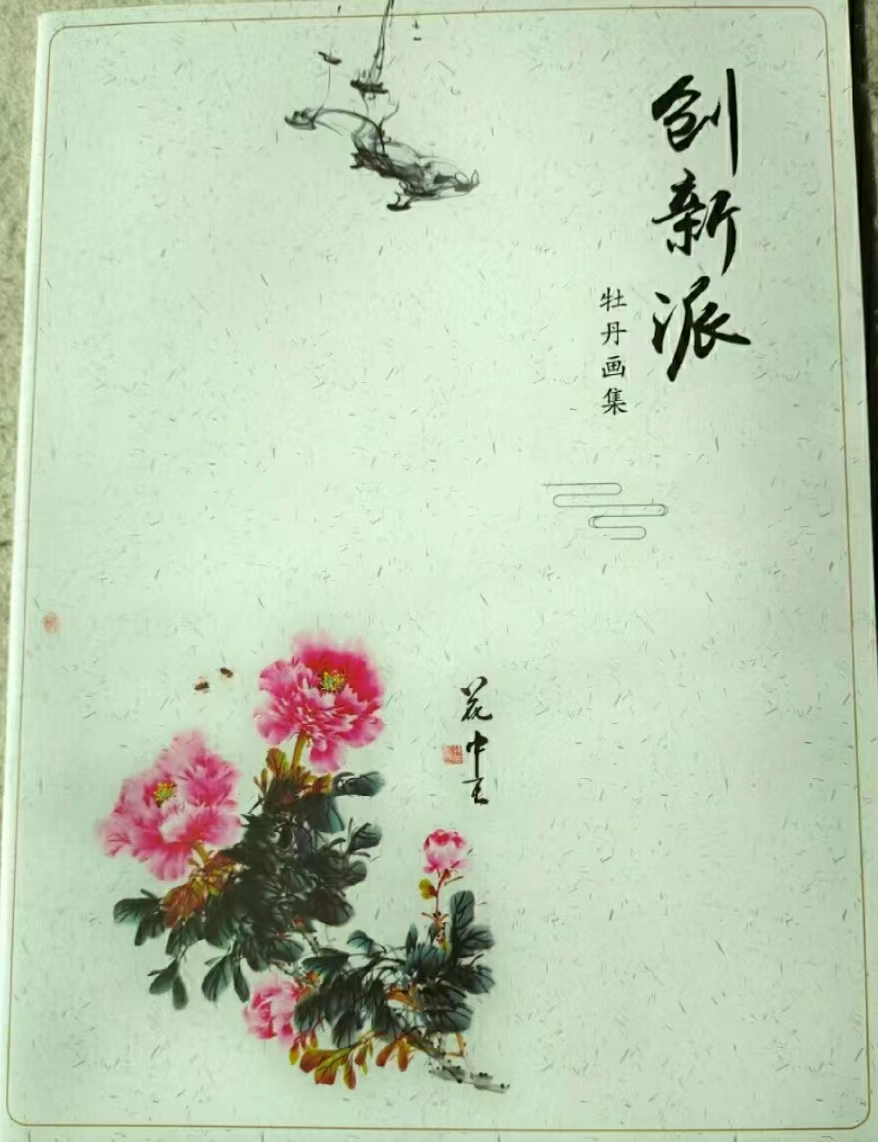 创新派
牡丹画集
花中王